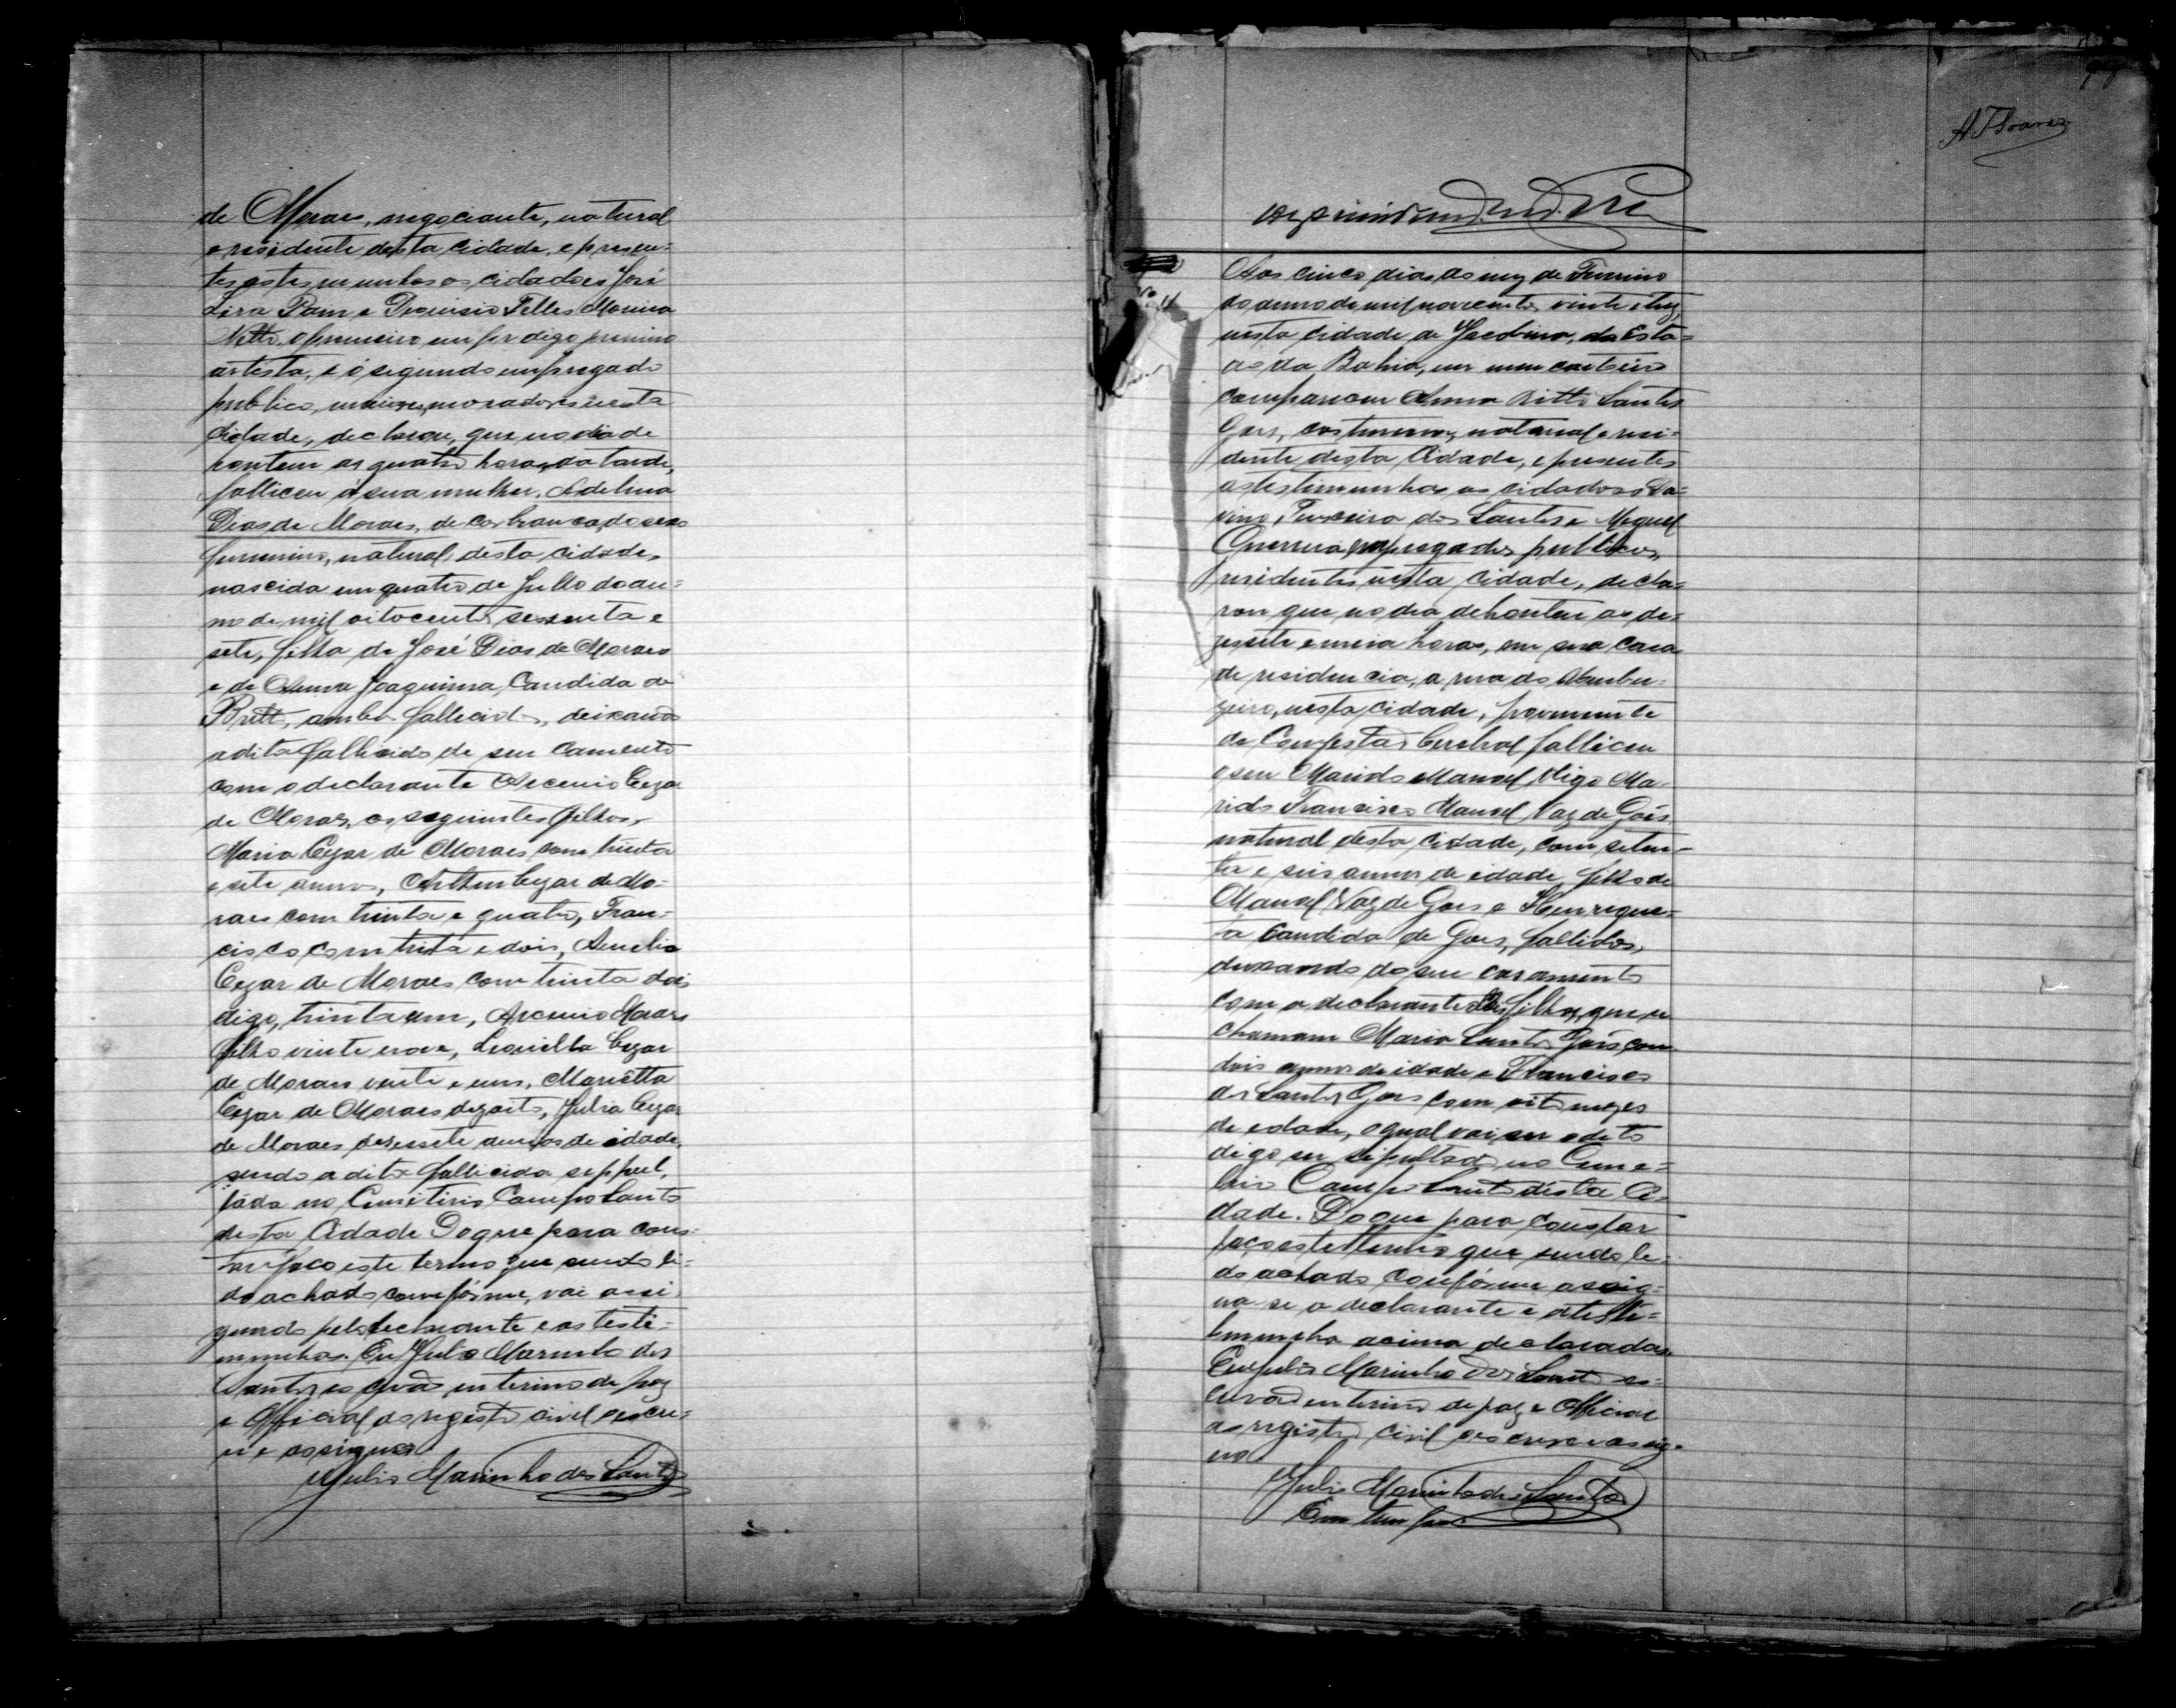 de Moraes, negociante, natural
e residente desta cidade, e presen-
tes as testemunhas os cidadãos José
Lira Pam e Dionisio Telles Moreira
Netto, o primeiro digo primeiro
artista, e o segundo empregado
publico, maiores, moradores nesta
Cidade, declarou, que no dia de
hontem as quatro horas da tarde,
falliceu á sua mulher, Adelina
Dias de Moraes, de cor branca, do sexo
femenino, natural desta cidade,
nascida em quatro de Julho do an-
no de mil oitocentos sessenta e
sete, filha de José Dias de Moraes
e de Anna Joaquina Candida de
Britto, ambos fallecidos, deixando
a dita fallicida de seu casamento
com o declarante Arcenio Cezar
de Moraes, os seguintes filhos,
Maria Cezar de Moraes com trinta
e sete annos, Arthur Cezar de Mo-
raes com trinta e quatro, Fran-
cisco com trinta e dois, Amelia
Cezar de Moraes com trinta dois
digo, trinta um, Arcenio Moraes
filho vinte nove, Cezar
de Moraes vinte e um, Mariêtta
Cezar de Moraes dezoito, Julia Cezar
de Moraes dezessete annos de idade,
sendo a dita fallicida seppul-
tada no Cimitirio Campo Santo
desta Cidade Do que para cons-
tar faço este termo que sendo li-
do achado comfórme, vai assi-
gnado pelo declarante e as teste-
munhas. Eu Julio Marinho dos
Santos escrivão interino de paz
e Official do registro civil escre-
vi e assigno
Julio Marinho dos Santos
A T Soares
Aos cinco dias do mez de
do anno de mil novecentos vinte e trez
nesta cidade de Jacobina, do Esta-
do da Bahia, em meu cartorio
compareceu Anna Britto Santos
Goes, costureira, natural e resi-
dente desta Cidade, e presentes
as testimunhas os cidadãos
dos Santos e Miguel
Guerreira empregados publicos,
residentes nesta cidade, decla-
rou que no dia de hontem as de-
zessete e meia horas, em sua casa
de residencia, a rua do
nesta cidade,
de Congestão Cerebral falliceu
o seu Marido Manoel digo Ma-
rido Francisco Manoel Vaz de Góes
natural desta cidade, com seten-
ta e seis annos de idade, filho de
Manoel Vaz de Goes e Henrique-
ta Candida de Goes, fallidos,
deixando do seu casamento
com a declarante dois filhos, que se
chamam Maria Santos Goes com
dois annos de idade e Francisco
dos Santos Goes com oito mezes
de edade, o qual vai ser o dito
digo ser sepultado no Cime-
terio Campo Santo desta Ci-
dade. Do que para constar
faço este termo que sendo li-
do achado confórme assig-
na-se o declarante e as teste-
munha acima declaradas
Eu Julio Marinho dos Santos es-
crivão interino de paz e Official
do registro civil escrevo e assig-
no
Julio Marinho dos Santos
Em tempo